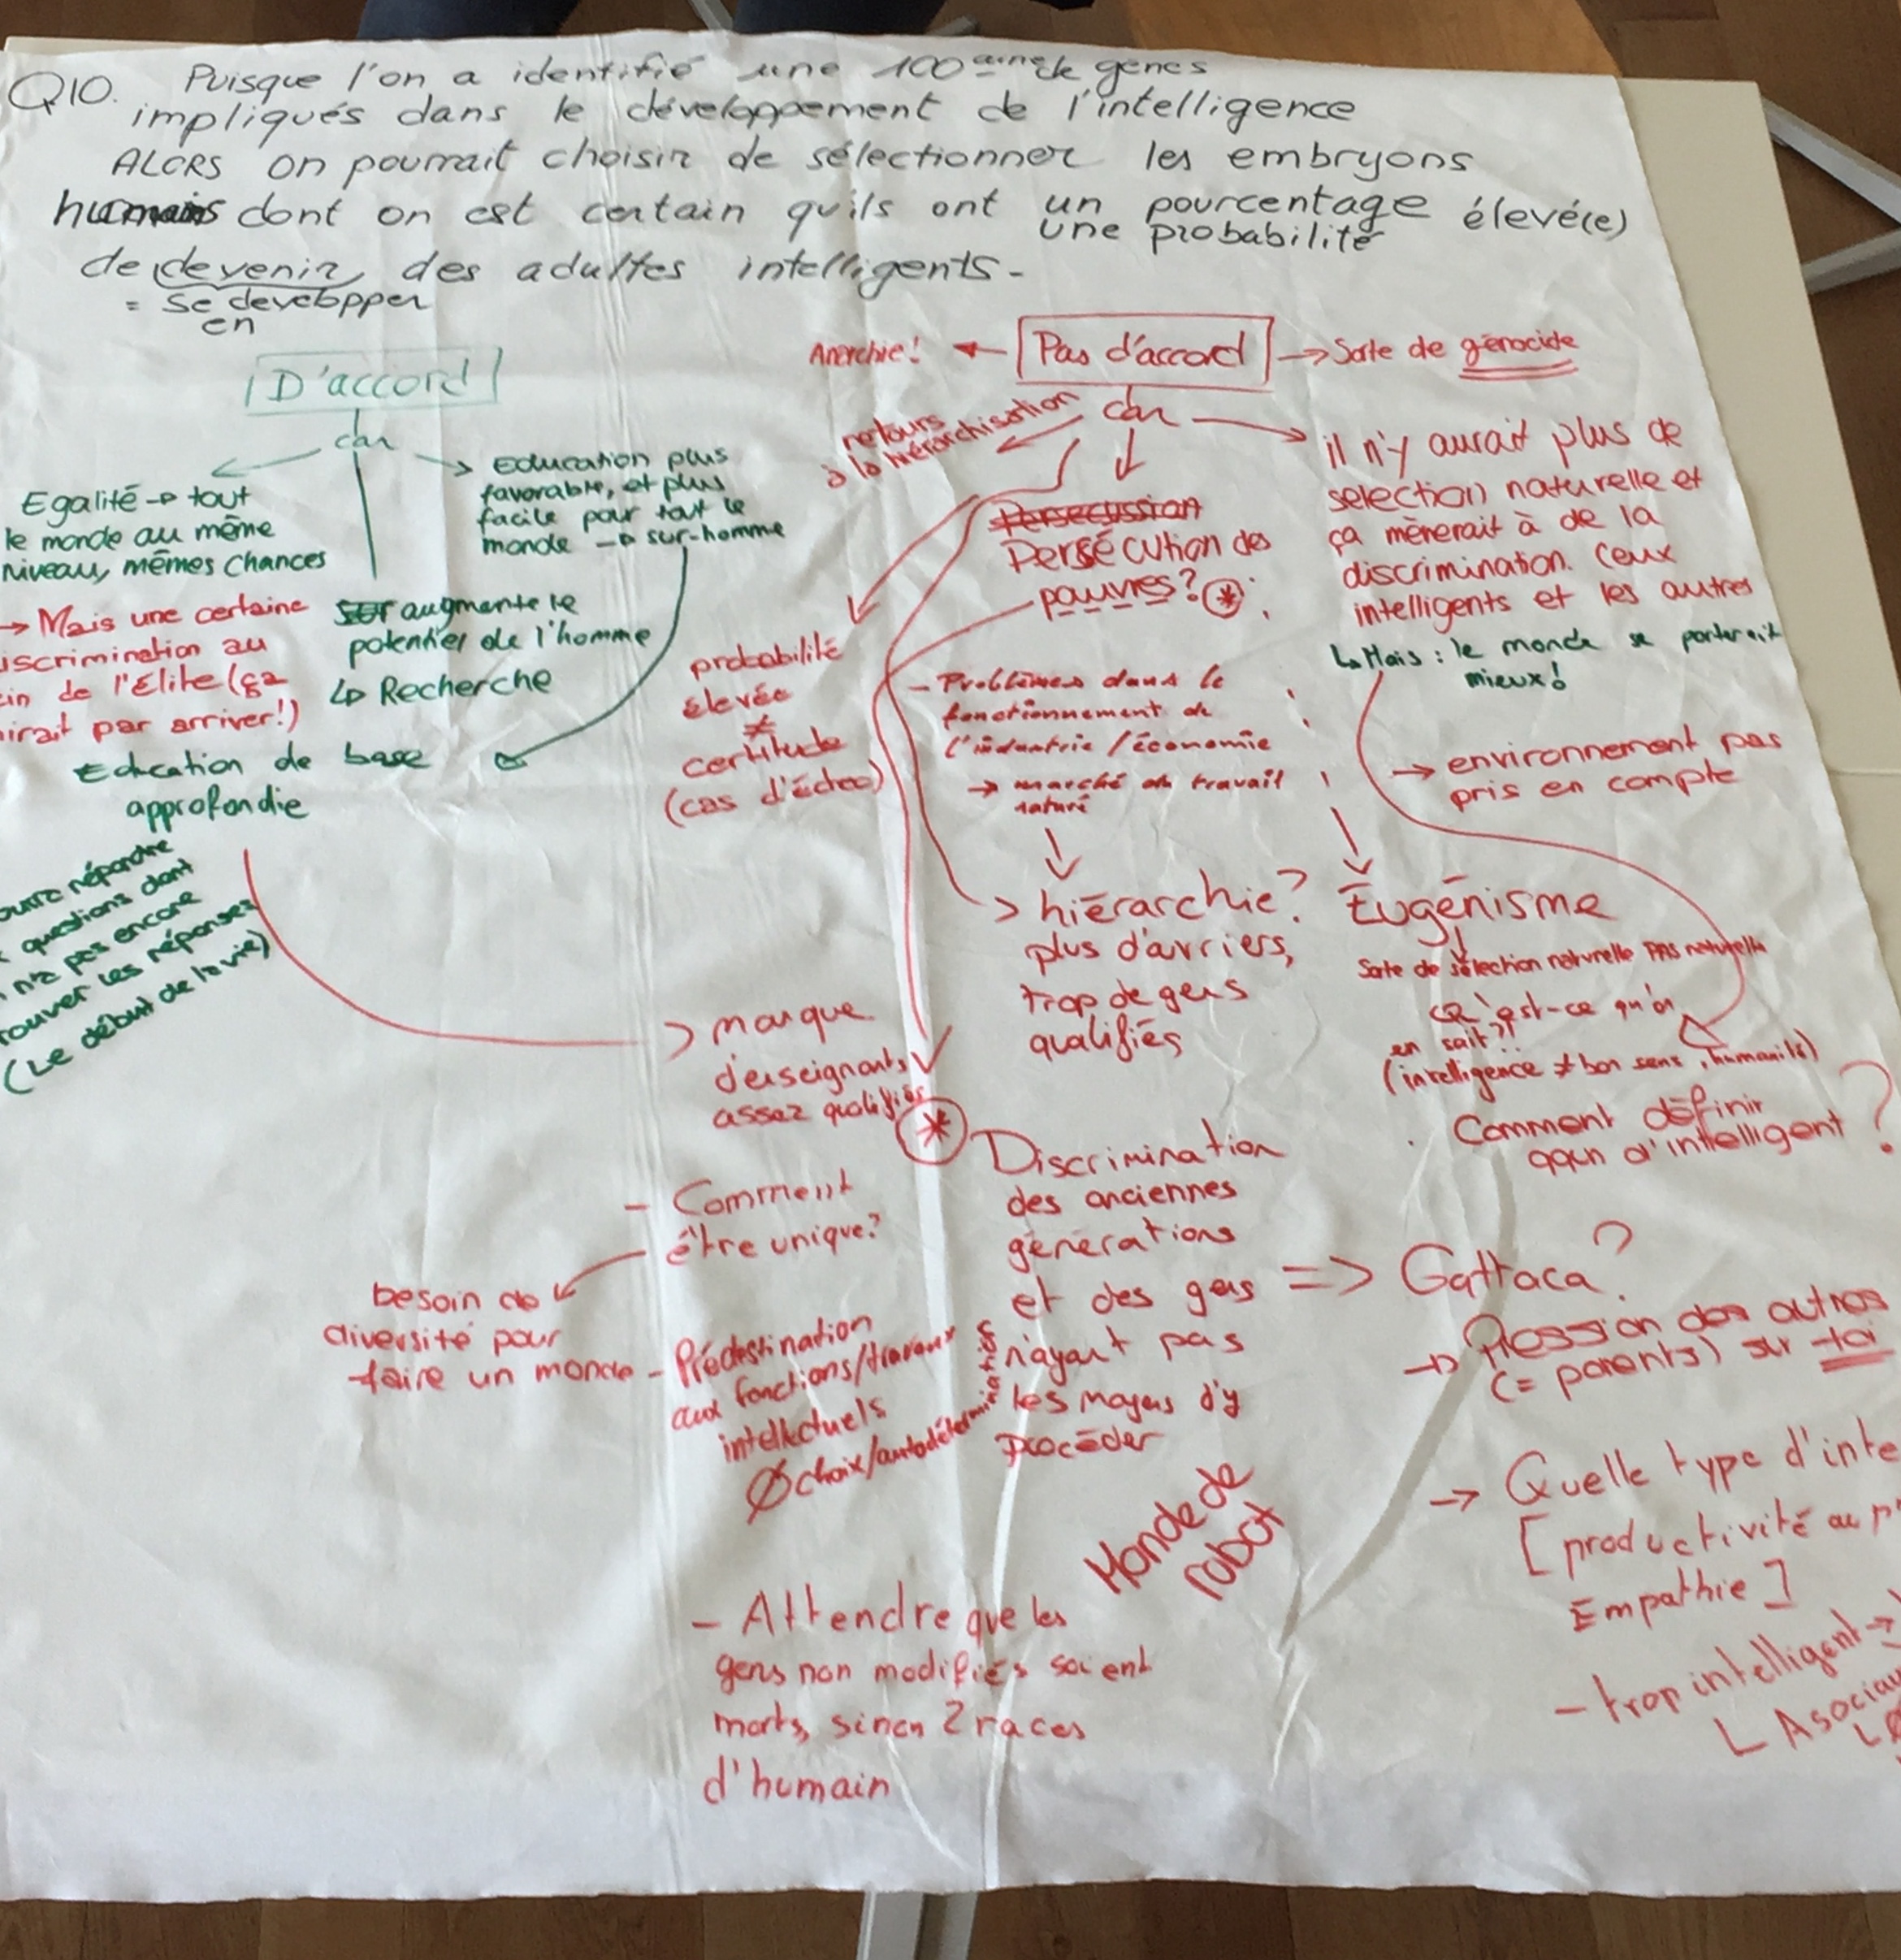 Q10. Puisque l'on a identifié une 100aine de gènes
impliqués dans le développement de l'intelligence
ALORS on pourrait choisir de sélectionner les embryons
humains dont on est certain qu'ils ont un pourcentage élevé(e)
une probabilité
de devenir des adultes intelligents-
= se developper
en
D'accord
car
Egalité → tout
le monde au même
niveau, mêmes chances
→ Mais une certaine
iscrimination au
in de l'Élite (ça
irait par arriver!)
Education plus
favorable, et plus
facile pour tout le
monde → sur-homme
augmente le
potentiel de l'homme
↳ Recherche
Education de base
approfondie
répondre
questions dont
n'a pas encore
rouver les réponses
(Le début de la vie)
Pas d'accord
Anarchie!
Sorte de génocide
car
retours
à la hiérarchisation
Persecussian
Persécution des
pauvres? *
il n'y aurait plus de
selection naturelle et
ça mènerait à de la
discrimination. Ceux
intelligents et les autres
↳ Mais : le monde se porterait
mieux!
→ environnement pas
pris en compte
probabilité
élevée
≠
certitude
(cas d'échec)
- Problèmes dans le
fonctionnement de
l'industrie / économie
→ marché du travail
saturé
> hiérarchie?
plus d'ouvriers,
trop de gens
qualifiés
Eugénisme
Sorte de sélection naturelle PAS naturelle
Qu'est-ce qu'on
en sait?!
(intelligence ≠ bon sens, humanité)
Comment définir
qqun d'intelligent ?
> manque
d'enseignants
assez qualifiés
* Discrimination
des anciennes
générations
et des gens
n'ayant pas
les moyens d'y
procéder
=> Gattaca?
→ Pression des autres
(= parents) sur toi
- Comment
être unique?
besoin de
diversité pour
faire un monde
- Prédestination
aux fonctions/travaux
intellectuels
Ø choix/autodétermination
Monde de
robot
→ Quelle type d'inte
[productivité au p
Empathie]
- trop intelligent →
L Asociau
- Attendre que les
gens non modifiés soient
morts, sinon 2 races
d'humain